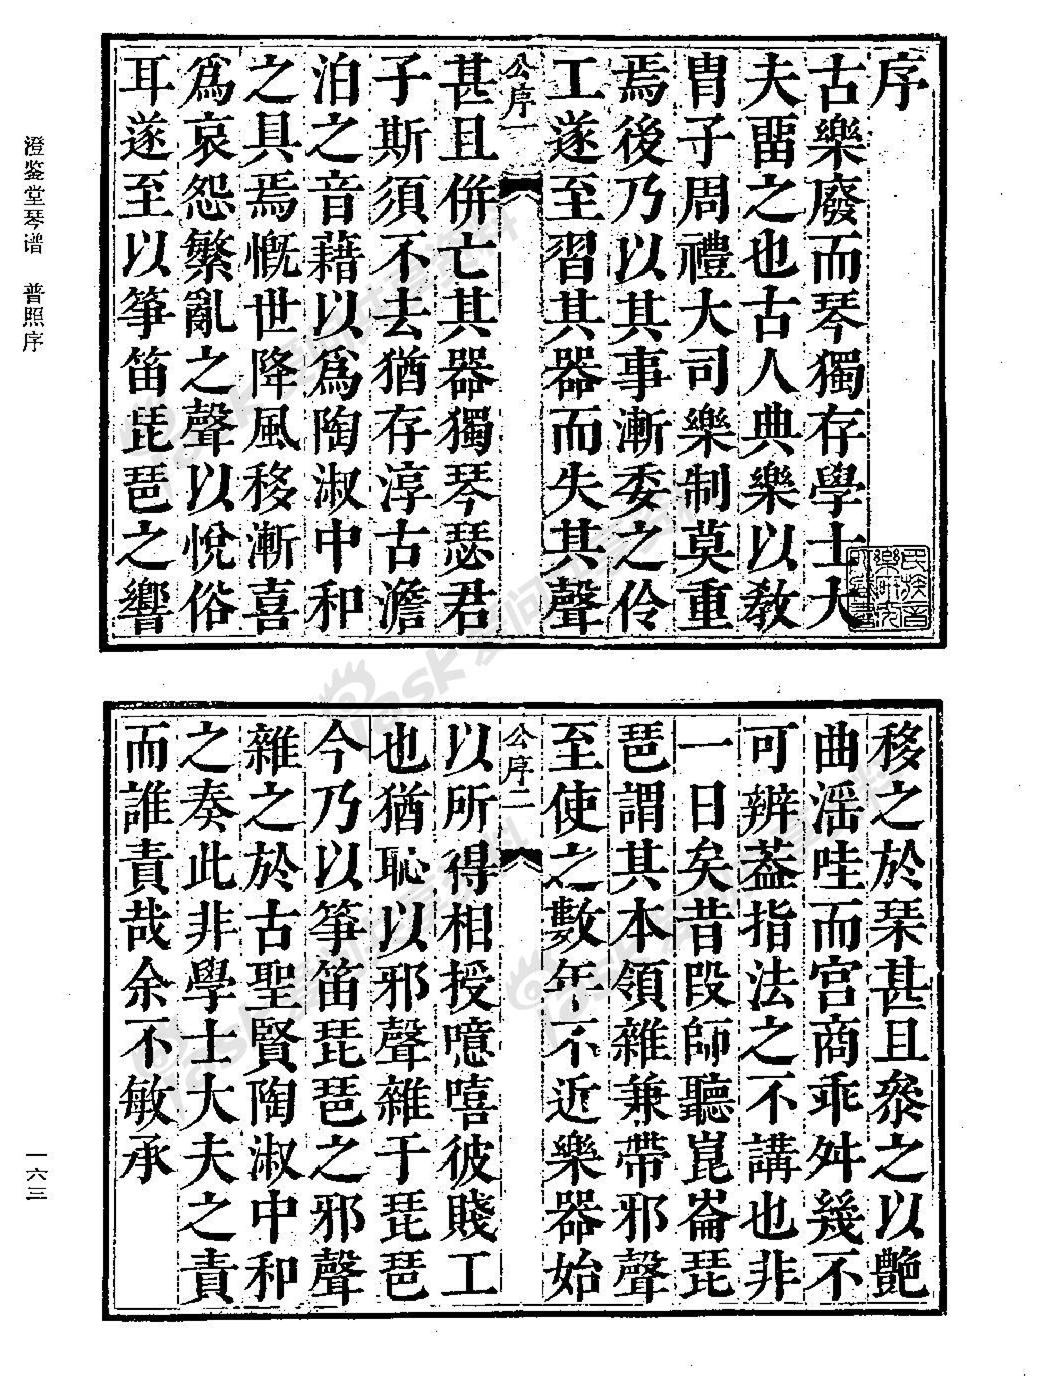 序
古樂廢而琴獨存學士大
夫畱之也古人典樂以敎
胄子周禮大司樂制莫重
焉後乃以其事漸委之伶
工遂至習其器而失其聲
公序一
甚且併亡其器獨琴瑟君
子斯須不去猶存淳古澹
泊之音藉以爲陶淑中和
之具焉慨世降風移漸喜
爲哀怨繁亂之聲以悅俗
耳遂至以筝笛琵琶之響
移之於琹甚且叅之以艶
曲滛哇而宮商乖舛幾不
可辨葢指法之不講也非
一日矣昔段師聽崑崙琵
琶謂其本領雜兼帶邪聲
至使之數年不近樂器始
公序二
以所得相授噫嘻彼賤工
也猶恥以邪聲雜于琵琶
今乃以筝笛琵琶之邪聲
雜之於古聖賢陶淑中和
之奏此非學士大夫之責
而誰責哉余不敏承
澄鉴堂琴谱 普照序
一六三